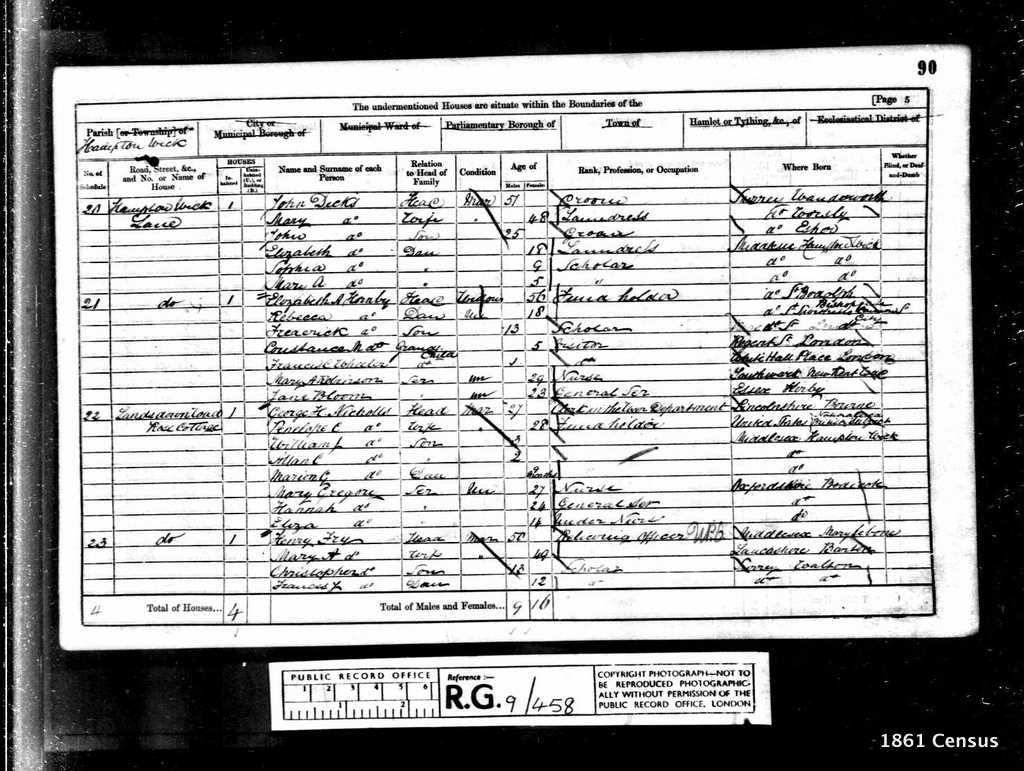 90
The undermentioned Houses are situate within the Boundaries of the [Page 5
Parish [or Township] of City or Municipal Borough of Municipal Ward of Parliamentary Borough of Town of Hamlet or Tything, &c., of Ecclesiastical District of
Hampton Wick
No. of Schedule Road, Street, &c., and No. or Name of House HOUSES Inhabited Uninhabited (U.), or Building (B.) Name and Surname of each Person Relation to Head of Family Condition Age of Males Females Rank, Profession, or Occupation Where Born Whether Blind, or Deaf-and-Dumb
20 Hampton Wick 1 John Dicks Head Mar 51 Groom Surrey Wandsworth
Lane Mary do Wife " 48 Laundress
John do Son 25 Groom do Esher
Elizabeth do Dau 18 Laundress Middlesex Hampton Wick
Sophia do " 9 Scholar do do
Mary A do " 5 " do do
21 do 1 Elizabeth A Hornby Head Widow 56 Fund holder do St
Rebecca do Dau Un 18 do
Frederick do Son 13 Scholar
Constance M do Grand Child 5 Visitor Regent St London
Francis C Wheeler do 1 do White Hall Place London
Mary Ser un 29 Nurse Southwark New Kent Road
Jane Bloom " un 23 General Ser Essex
22 Landsdown Road 1 George H Nicholls Head Mar 27 Clerk in the War Department Lincolnshire Bourne
Rose Cottage Penelope C do Wife " 28 Fund holder United States
William J do Son 3 Middlesex Hampton Wick
Allan C do " 2 do
Marion G do Dau Months do
Mary Gregory Ser Un 27 Nurse Oxfordshire
Hannah do " 24 General Ser do
Eliza do " 14 Under Nurse do
23 do 1 Henry Fry Head Mar 50 Relieving Officer Middlesex Marylebone
Mary A do Wife " 49 Lancashire Barton
Christopher do Son 13 Scholar Surrey Walton
Frances J do Dau 12 do do do
4 Total of Houses... 4 Total of Males and Females... 9 16
PUBLIC RECORD OFFICE
1 2 3 4 5 6
1 2
Reference :-
R.G. 9/458
COPYRIGHT PHOTOGRAPH—NOT TO
BE REPRODUCED PHOTOGRAPHIC-
ALLY WITHOUT PERMISSION OF THE
PUBLIC RECORD OFFICE, LONDON
1861 Census